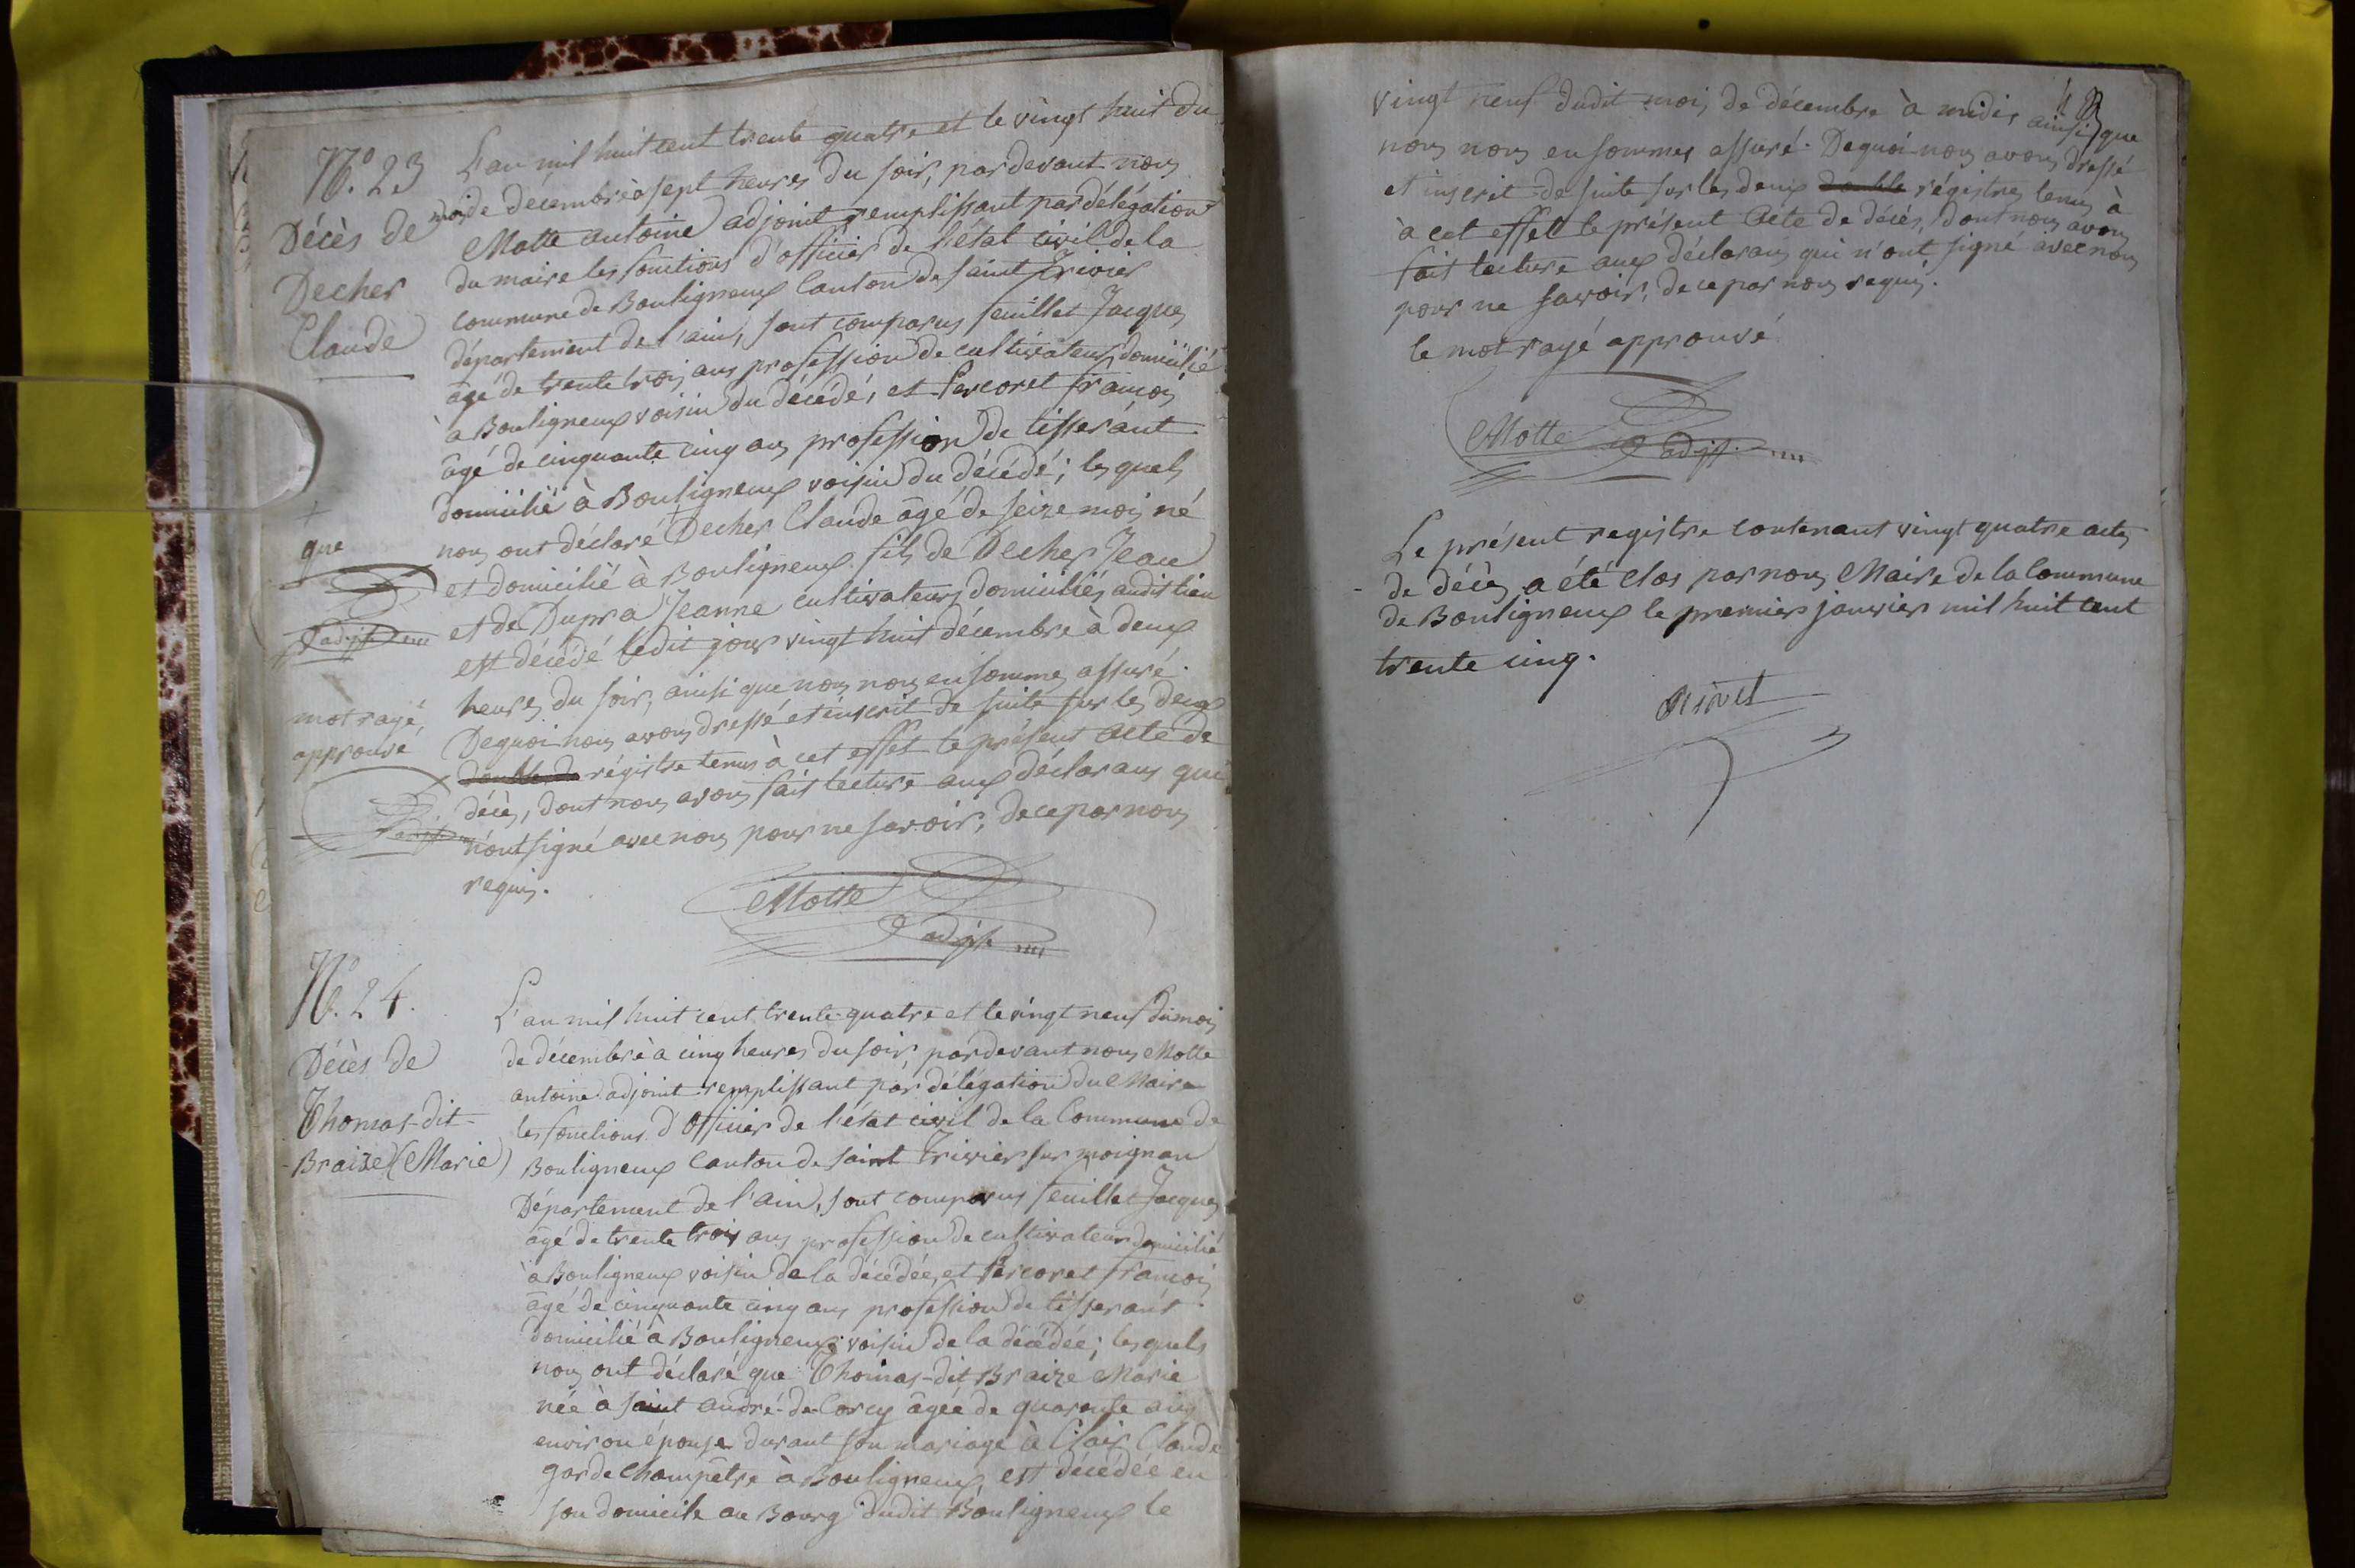 N.º 23
Décès de
Decher
Claude
L'an mil huit cent trente quatre et le vingt huit du
mois de décembre à sept heures du soir, pardevant nous
Motte antoine adjoint remplissant par délégation
du maire les fonctions d'officier de l'état civil de la
commune de Bouligneux Canton de saint Trivier
département de l'ain, sont comparus feuillet Jacques
âgé de trente trois ans profession de cultivateur domicilié
à Bouligneux voisin du décédé, et Percoret françois
âgé de cinquante cinq ans profession de tisserant
domicilié à Bouligneux voisin du décédé; les quels
nous ont déclaré + Decher Claude âgé de seize mois né
et domicilié à Bouligneux fils de Decher Jean
et de Dupra Jeanne cultivateurs domiciliés audit lieu
est décédé ledit jour vingt huit décembre à deux
heures du soir, ainsi que nous nous en sommes assuré.
Dequoi nous avons dressé et inscrit de suite sur les deux
double de régistre tenus à cet effet le présent acte de
décès, dont nous avons fait lecture aux déclarans qui
n'ont signé avec nous pour ne savoir, de ce par nous
requis.
+
que
adjt
mot rayé,
approuvé
adjt
Motte
adjt
N.º 24.
Décès de
Thomas-dit-
Braize (Marie)
L'an mil huit cent trente-quatre et le vingt neuf du mois
de décembre à cinq heures du soir pardevant nous Motte
antoine adjoint remplissant par délégation du Maire
les fonctions d'Officier de l'état civil de la Commune de
Bouligneux Canton de saint Trivier sur moignan
Département de l'ain, sont comparus feuillet Jacques
âgé de trente trois ans profession de cultivateur domicilié
à Bouligneux voisin de la décédée, et Percoret françois
âgé de cinquante cinq ans profession de tisserant
domicilié à Bouligneux voisin de la décédée; les quels
nous ont déclaré que Thomas-dit Braize Marie
née à saint andré-de-Corcy âgée de quarante ans
environ épouse durant son mariage à Clair Claude
garde Champêtre à Bouligneux, est décédée en
son domicile au Bourg dudit Bouligneux le
vingt neuf dudit mois de décembre à midi, ainsi que
nous nous en sommes assuré. Dequoi nous avons dressé
et inscrit de suite sur les deux double régistres tenus à
à cet effet le présent acte de décès, dont nous avons
fait lecture aux déclarans qui n'ont signé avec nous
pour ne savoir, de ce par nous requis.
le mot rayé approuvé
Motte
adjt
Le présent registre contenant vingt quatre actes
de décès a été clos par nous Maire de la Commune
de Bouligneux le premier janvier mil huit cent
trente cinq.